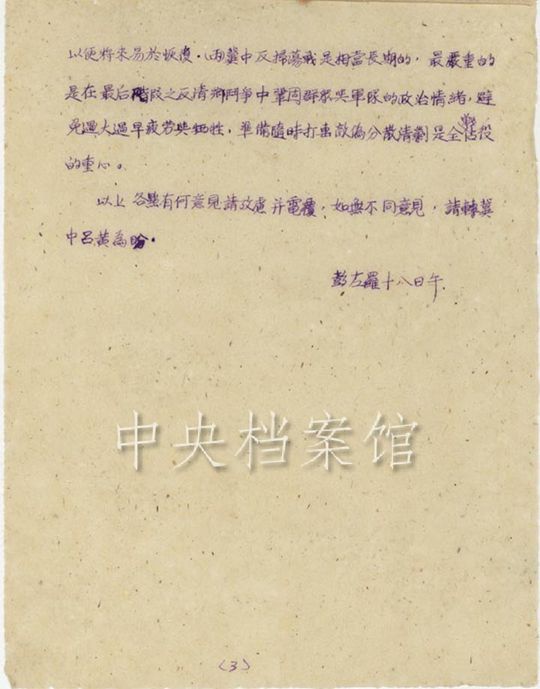 以便將來易於恢復．而冀中反掃蕩戰是相當長期的，最嚴重的
是在最后階段之反清鄉鬥爭中鞏固群眾與軍隊的政治情緒，避
免過大過早疲劳與牺牲，準備隨時打击敵偽分散清剿是全战役
的重心。
以上各點有何意見請攷慮并電覆，如無不同意見，請轉冀
中呂黃為盼．
彭左羅十八日午．
中央档案馆
(3)